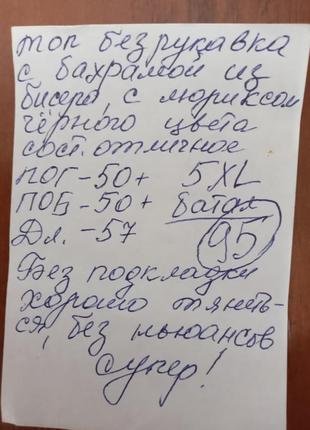 топ безрукавка
с бахрамой из
бисера, с люриксом
чёрного цвета
сост. отличное
ПОГ-50+ 5XL
ПОБ-50+ батал
Дл. -57 95
Без подкладки
хорошо тянеть-
ся, без ньюансов
супер!